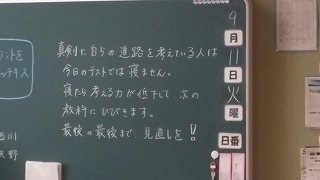 真剣に自らの進路を考えている人は
今日のテストでは寝ません。
寝たら考える力が低下して次の
教科にひびきます。
最後の最後まで、見直しを!!
9
月
11
日
火
曜
日番